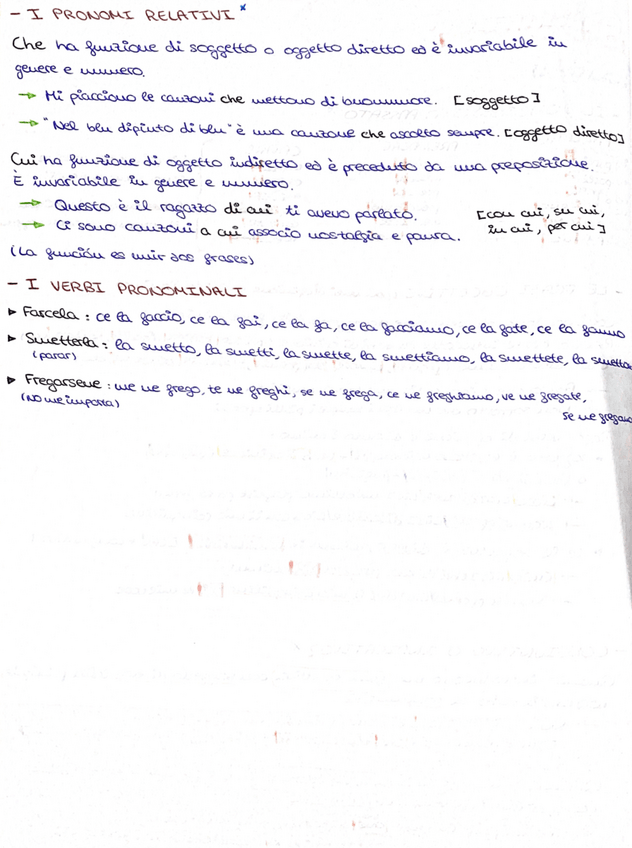 - I PRONOMI RELATIVI *
Che ha funzione di soggetto o oggetto diretto ed è invariabile in
genere e numero.
→ Mi piacciono le canzoni che mettono di buonumore. [soggetto]
→ "Nel blu dipinto di blu" è una canzone che ascolto sempre. [oggetto diretto]
Cui ha funzione di oggetto indiretto ed è preceduto da una preposizione.
È invariabile in genere e numero.
→ Questo è il ragazzo di cui ti avevo parlato. [con cui, su cui,
→ Ci sono canzoni a cui associo nostalgia e paura. in cui, per cui]
(La función es unir dos frases)
- I VERBI PRONOMINALI
▸ Farcela: ce la faccio, ce la fai, ce la fa, ce la facciamo, ce la fate, ce la fanno
▸ Smetterla: la smetto, la smetti, la smette, la smettiamo, la smettete, la
(parar)
▸ Fregarsene: me ne frego, te ne freghi, se ne frega, ce ne freghiamo, ve ne fregate,
(NO me importa) se ne